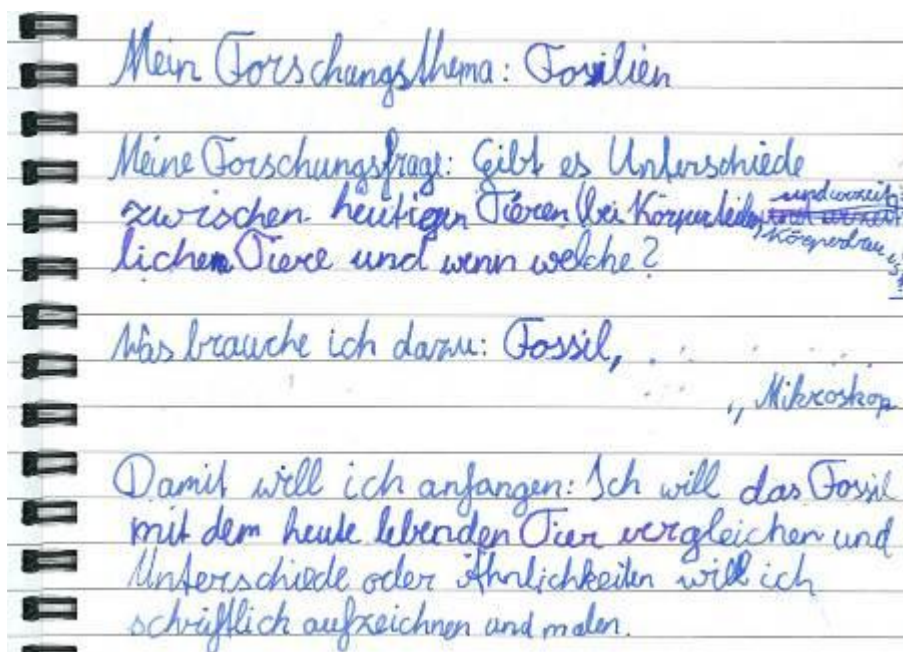 Mein Forschungsthema: Fossilien
Meine Forschungsfrage: Gibt es Unterschiede
zwischen heutigen Tieren (bei Körperteilen, und urzeit-
Körperbau
lichen Tiere und wenn welche?
Was brauche ich dazu: Fossil,
Mikroskop
Damit will ich anfangen: Ich will das Fossil
mit dem heute lebenden Tier vergleichen und
Unterschiede oder Ähnlichkeiten will ich
schriftlich aufzeichnen und malen.